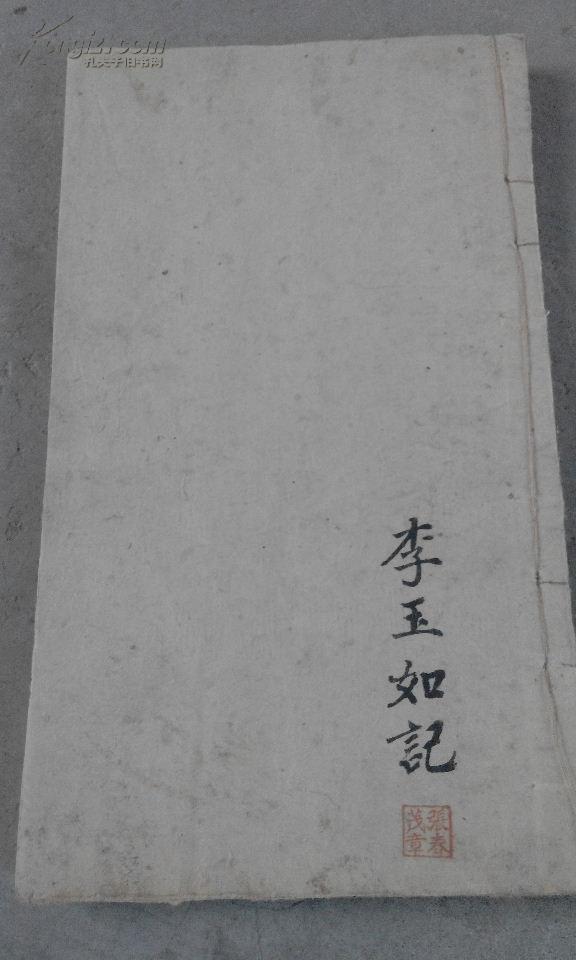 Kongfz.com
孔夫子旧书网
李玉如記
張春
茂章